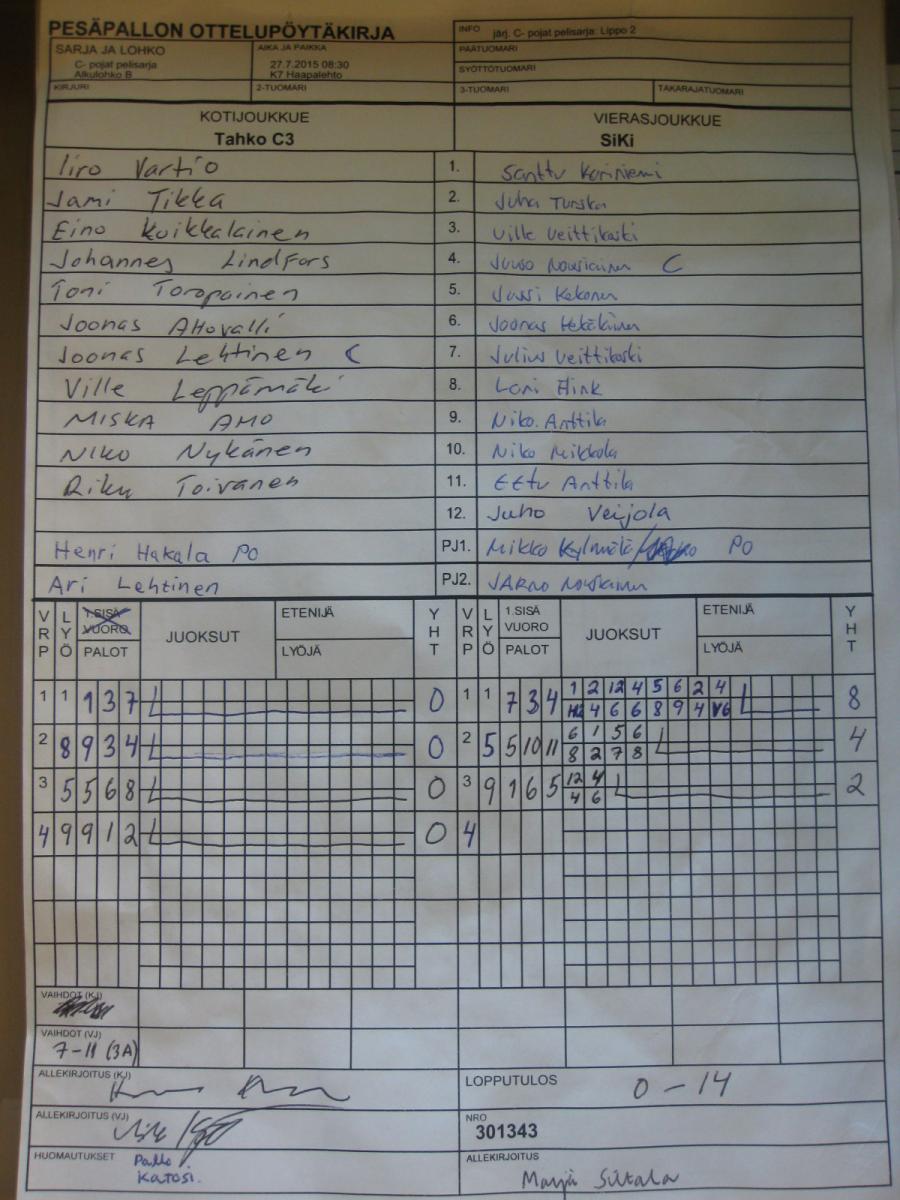 PESÄPALLON OTTELUPÖYTÄKIRJA
INFO järj. C- pojat pelisarja: Lippo 2
SARJA JA LOHKO
C- pojat pelisarja
Alkulohko B
AIKA JA PAIKKA
27.7.2015 08:30
K7 Haapalehto
PÄÄTUOMARI
SYÖTTÖTUOMARI
KIRJURI
2-TUOMARI
3-TUOMARI
TAKARAJATUOMARI
KOTIJOUKKUE
Tahko C3
VIERASJOUKKUE
SiKi
Iiro Vartio 1. Santtu Koriniemi
Jami Tikka 2. Juha Turska
Eino Kuikkalainen 3. Ville Veittikoski
Johannes Lindfors 4. Juuso Nousiainen C
Toni Toropainen 5. Jussi Kekonen
Joonas Ahovalli 6. Joonas
Joonas Lehtinen C 7. Julius Veittikoski
Ville Leppämäki 8. Lari Hink
MISKA AHO 9. Niko Anttila
NIKO Nykänen 10. Niko Mikkola
Riku Toivanen 11. EEtu Anttila
12. Juho Veijola
Henri Hakala PO PJ1. Mikko Kylmälä PO
Ari Lehtinen PJ2. JARNO Nousiainen
VRP LYÖ 1.SISÄ VUORO PALOT JUOKSUT ETENIJÄ LYÖJÄ YHT VRP LYÖ 1.SISÄ VUORO PALOT JUOKSUT ETENIJÄ LYÖJÄ YHT
1 1 1 3 7 0 1 1 7 3 4 1 2 12 4 5 6 2 4 8
4 6 6 8 9 4
2 8 9 3 4 0 2 5 5 10 11 6 1 5 6 4
8 2 7 8
3 5 5 6 8 0 3 9 1 6 5 12 4 2
4 6
4 9 9 1 2 0 4
VAIHDOT (KJ)
VAIHDOT (VJ)
7-11 (3A)
ALLEKIRJOITUS (KJ)
LOPPUTULOS 0 - 14
ALLEKIRJOITUS (VJ)
NRO
301343
HUOMAUTUKSET Pallo
KATOSI.
ALLEKIRJOITUS
Marja Siltala